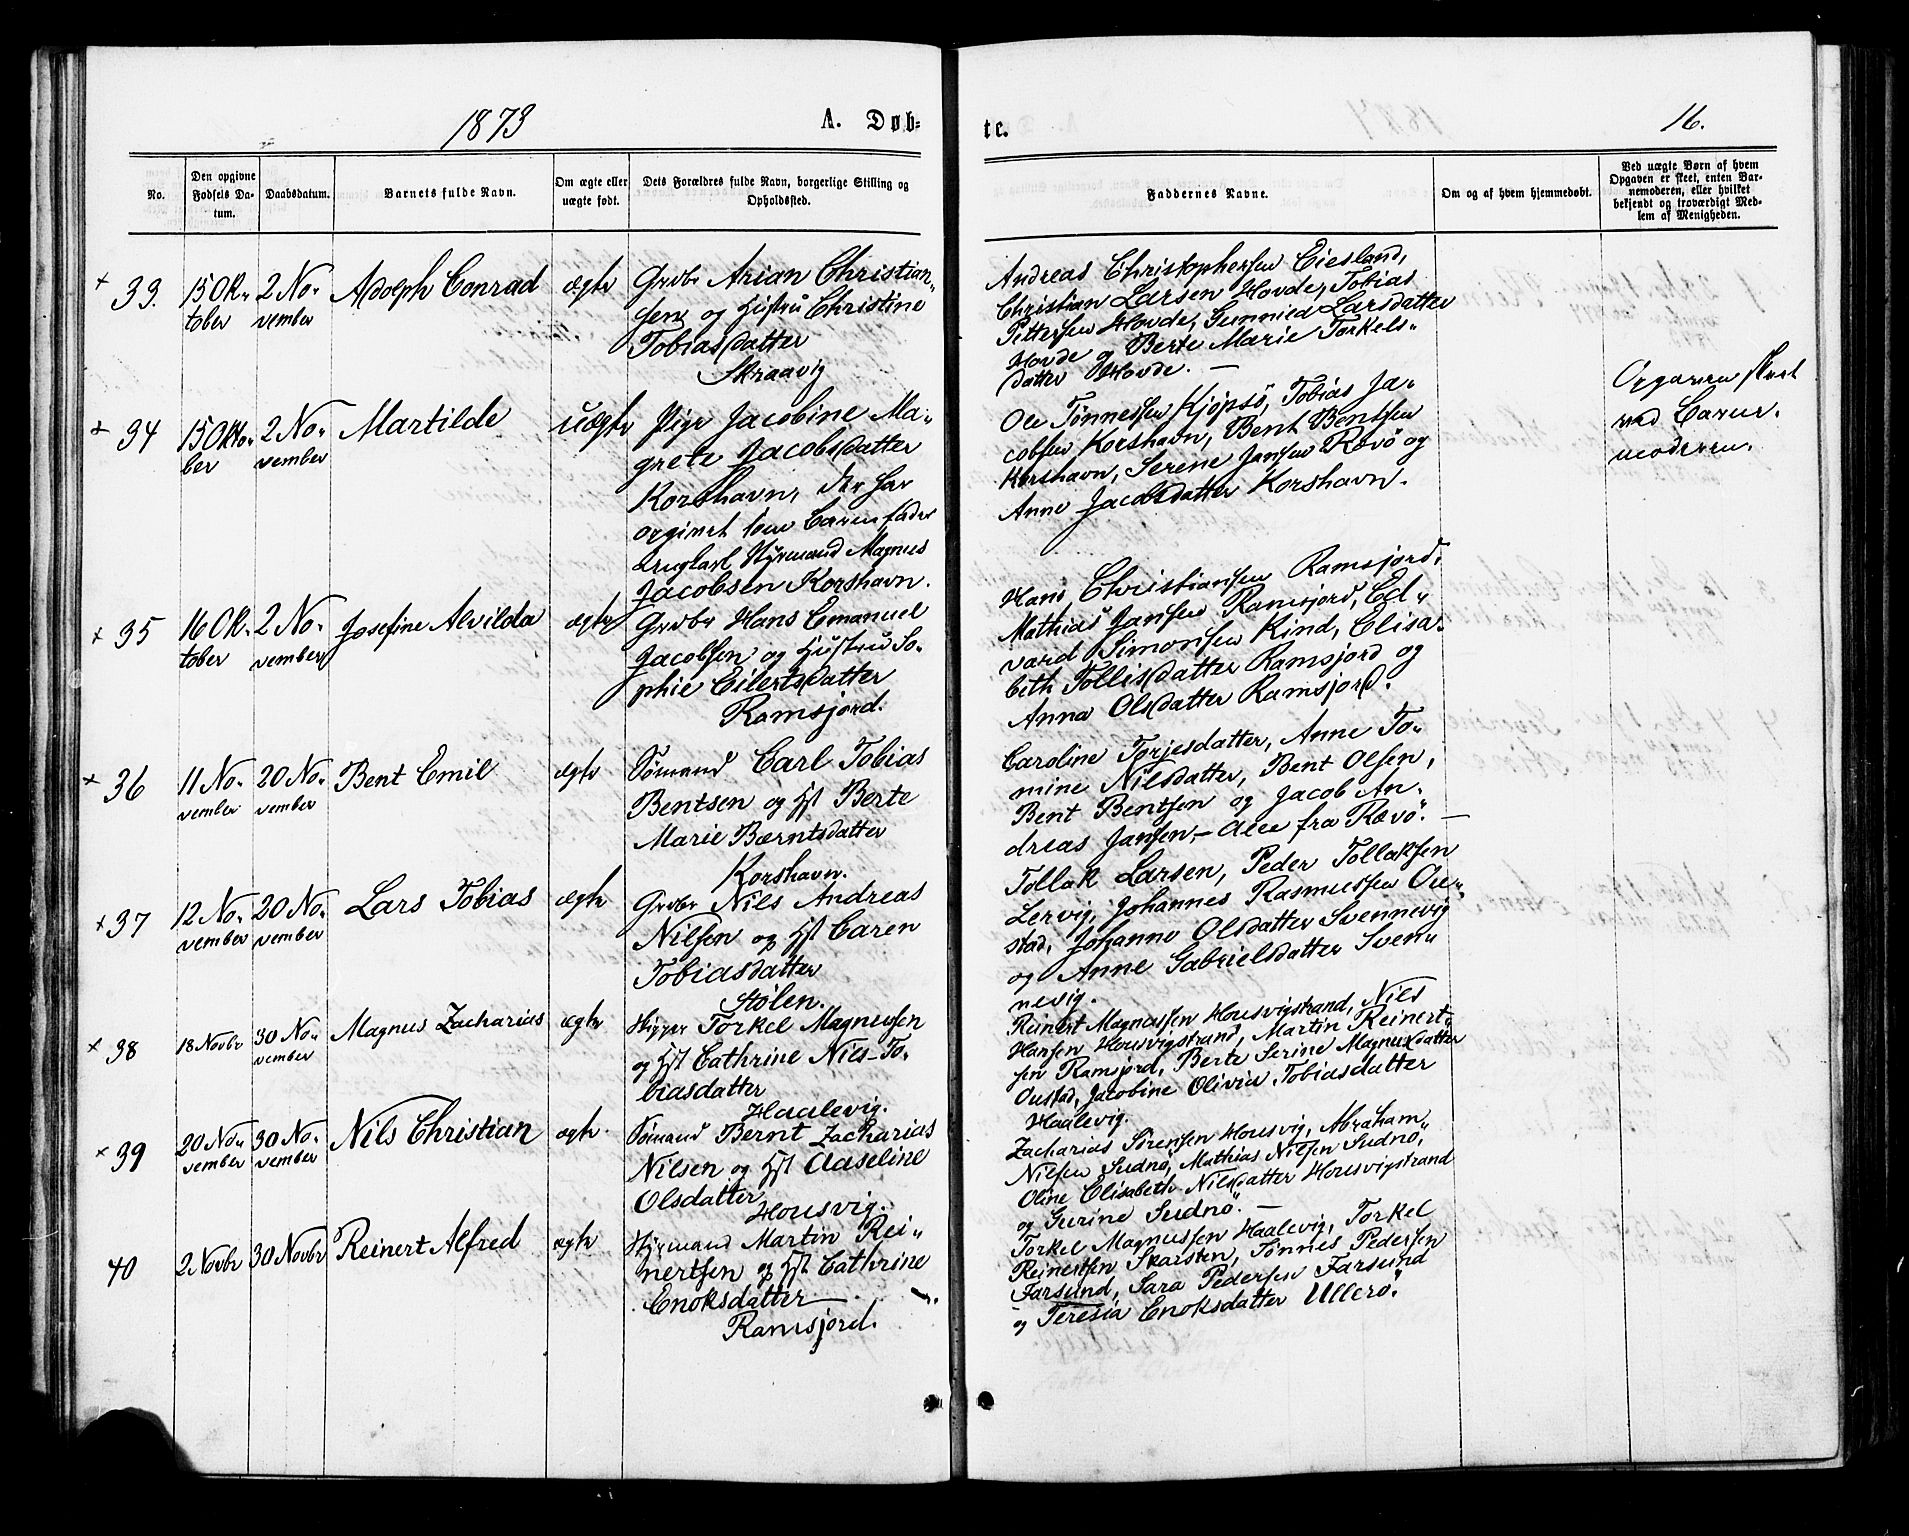 1873
A. Døb-
te.
16.
No.
Den opgivne
Fødsels Da-
tum.
Daabsdatum.
Barnets fulde Navn.
Om ægte eller
uægte født.
Dets Forældres fulde Navn, borgerlige Stilling og
Opholdssted.
Faddernes Navne.
Om og af hvem hjemmedøbt.
Ved uægte Børn af hvem
Opgaven er skeet, enten Bar-
nemoderen, eller hvilket
bekjendt og troværdigt Med-
lem af Menigheden.
+ 33. 15 Ok- 2 No- Adolph Conrad ægte Grdbr Arian Christian-
tober vember sen og Hustru Christine
Tobiasdatter
Skraavig
Andreas Christophersen Eiesland,
Christian Larsen Hovde, Tobias
Pettersen Hovde, Gunnild Larsdatter
Hovde og Berte Marie Torkels-
datter Hovde. —
+ 34 15 Okto- 2 No- Martilde uægte Pige Jacobine Ma-
ber vember grete Jacobsdatter
Korshavn, der har
opgivet som Barnefader
ungkarl Styrmand Magnus
Jacobsen Korshavn.
Ole Tønnessen Kjøpsö, Tobias Ja-
cobsen Korshavn, Bent Bentsen
Korshavn, Serene Jansen Rævö og
Anne Jacobsdatter Korshavn.
Opgaven skeet
ved Barne-
moderen.
+ 35 16 Ok- 2 No- Josefine Alvilda ægte Grdbr Hans Emanuel
tober vember Jacobsen og Hustru So-
phie Eilertsdatter
Ramsjord.
Hans Christiansen Ramsjord,
Mathias Jansen Ramsjord, Ed-
vard Simonsen Rind, Elisa-
beth Tollisdatter Ramsjord og
Anna Olsdatter Ramsjord.
+ 36 11 No- 20 No- Bent Emil ægte Sömand Carl Tobias
vember vember Bentsen og Hst Berte
Marie Bærntsdatter
Korshavn.
Caroline Torjesdatter, Anne To-
mine Nilsdatter, Bent Olsen,
Bent Bentsen og Jacob An-
dreas Jansen, - Alle fra Rævö. —
+ 37 12 No- 20 No- Lars Tobias ægte Grdbr Nils Andreas
vember vember Nilsen og Hst Caren
Tobiasdatter
Stølen.
Tollak Larsen, Peder Tollaksen
Lervig, Johannes Rasmussen Ou-
stad, Johanne Olsdatter Svennevig
og Anne Gabrielsdatter Sven-
nevig.
+ 38 18 Novbr 30 No- Magnus Zacharias ægte Skipper Torkel Magnussen
vember og Hst Cathrine Nils-To-
biasdatter
Haalevig.
Reinert Magnussen Housvigstrand, Nils
Hansen Housvigstrand, Martin Reinert-
sen Ramsjord, Berte Serine Magnusdatter
Oustad, Jacobine Olivia Tobiasdatter
Haalevig.
+ 39 20 No- 30 No- Nils Christian ægte. Sömand Bernt Zacharias
vember vember Nilsen og Hst Aaseline
Olsdatter
Housvig.
Zacharias Sørensen Housvig, Abraham
Nilsen Sudnø, Mathias Nilsen Sudnø,
Oline Elisabeth Nilsdatter Housvigstrand
og Gurine Sudnø. —
40 2 Novbr 30 Novbr Reinert Alfred ægte Styrmand Martin Rei-
nertsen og Hst Cathrine
Enoksdatter
Ramsjord.
Torkel Magnussen Haalevig, Torkel
Reinertsen Skarsten, Tønnes Pedersen
Farsund, Sara Pedersen Farsund
og Teresia Enoksdatter Ullerö.